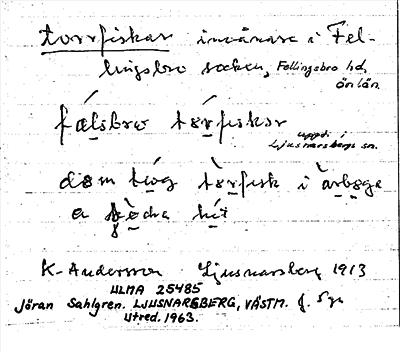 torrfiskar invånare i Fel-
lingsbro socken, Fellingsbro hd,
ön län.
fálsbro tórfiskor
uppt. i
Ljusnarsbergs sn.
dom tóg tòrfisk i àrboga
a hít
K-Andersson Ljusnarsberg 1913
ULMA 25485
Jöran Sahlgren. LJUSNARSBERG, VÄSTM. f.
Utred. 1963.